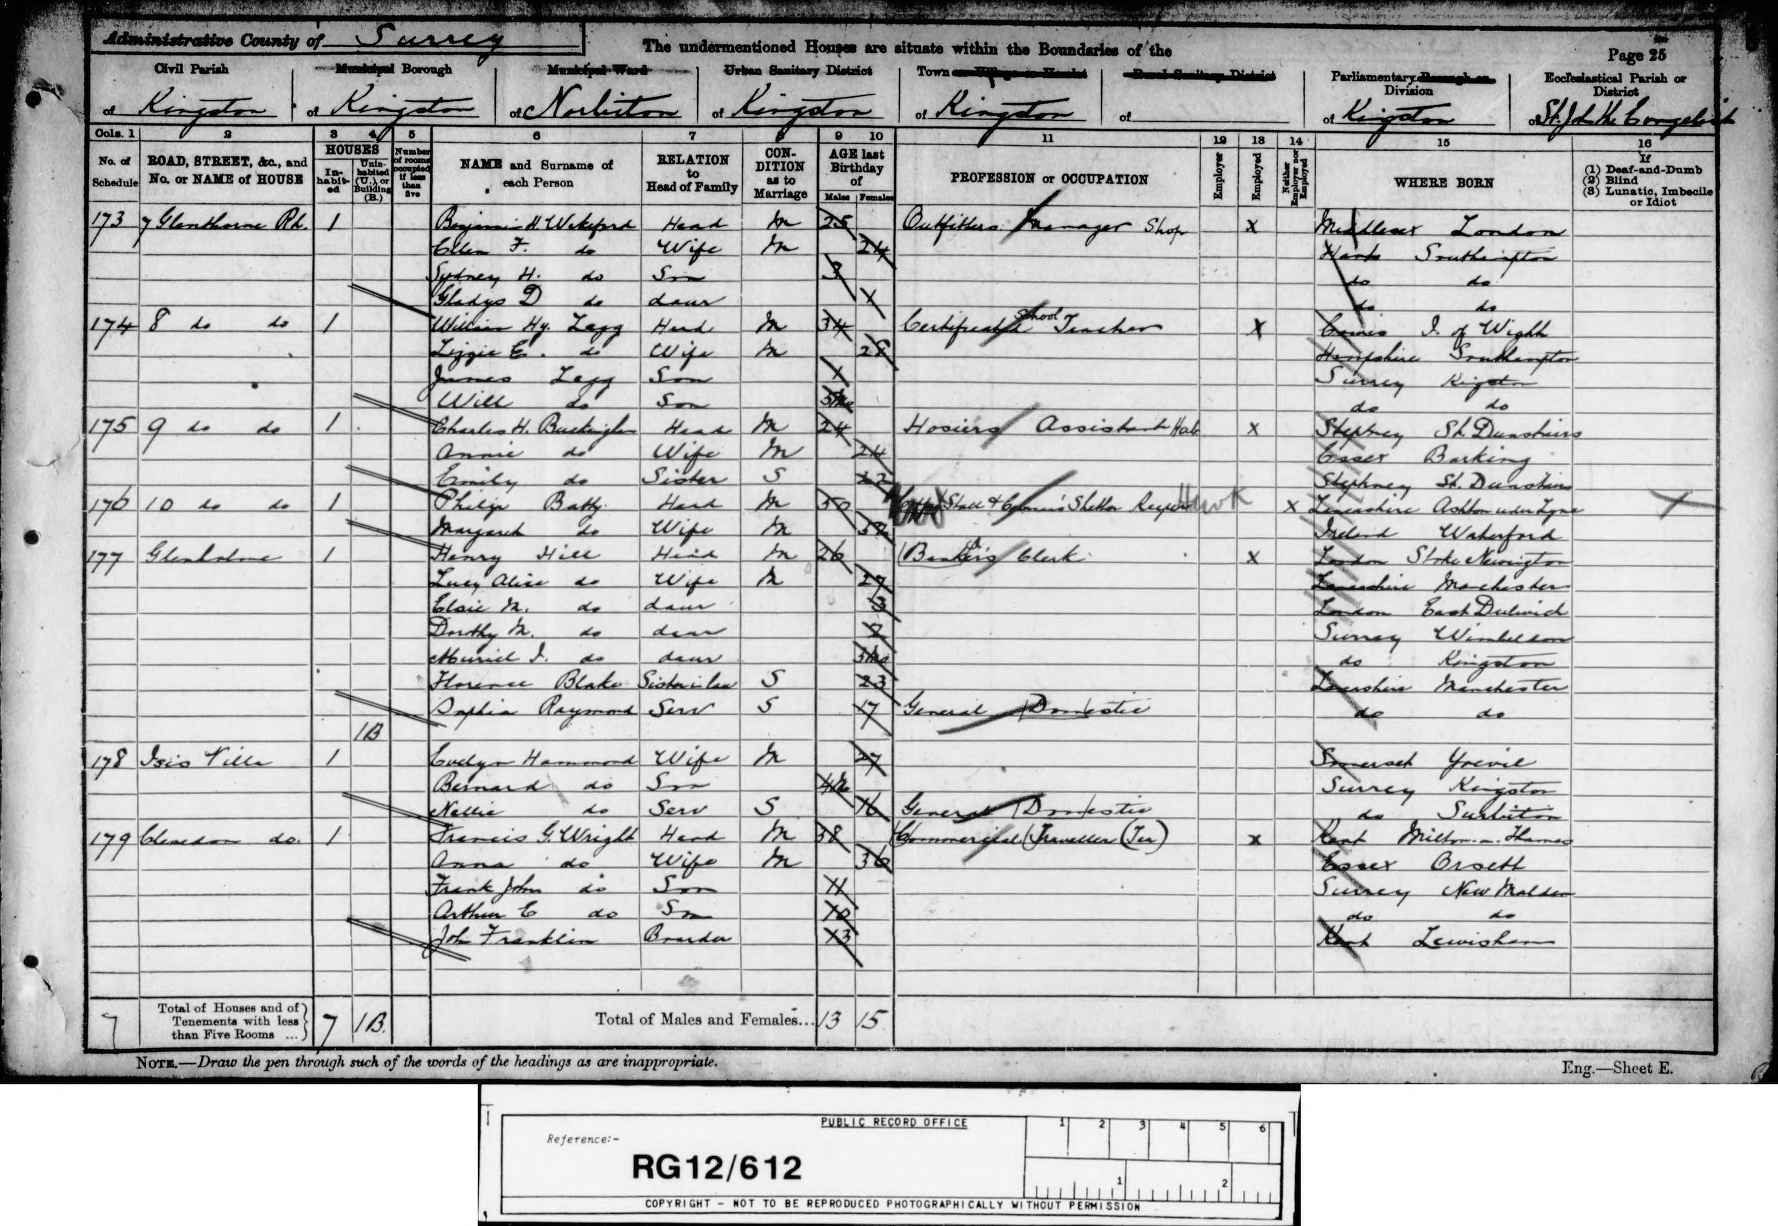 Administrative County of Surrey
The undermentioned Houses are situate within the Boundaries of the
Page 25
Civil Parish
Municipal Borough
Municipal Ward
Urban Sanitary District
Town or Village or Hamlet
Rural Sanitary District
Parliamentary Borough or Division
Ecclesiastical Parish or District
of Kingston
of Kingston
of Norbiton
of Kingston
of Kingston
of
of Kingston
of St. John the Evangelist
Cols. 1 2 3 4 5 6 7 8 9 10 11 12 13 14 15 16
No. of Schedule
ROAD, STREET, &c., and No. or NAME of HOUSE
HOUSES
Inhabited
Uninhabited (U.), or Building (B.)
Number of rooms occupied if less than five
NAME and Surname of each Person
RELATION to Head of Family
CONDITION as to Marriage
AGE last Birthday of
Males Females
PROFESSION or OCCUPATION
Employer
Employed
Neither Employer nor Employed
WHERE BORN
If
(1) Deaf-and-Dumb
(2) Blind
(3) Lunatic, Imbecile or Idiot
173 7 Glenthorne Rd. 1 Benjamin H. Wakeford Head M 25 Outfitters Manager Shop X Middlesex London
Ellen F. do Wife M 24 Hants Southampton
Sydney H. do Son 3 do do
Gladys D do daur 1 do do
174 8 do do 1 William Hy. Legg Head M 34 Certificated School Teacher X Cowes I. of Wight
Lizzie E. do Wife M 28 Hampshire Southampton
James Legg Son 1 Surrey Kingston
Will do Son 5 Mo do do
175 9 do do 1 Charles H. Buckingham Head M 24 Hosiers Assistant Hab X Stepney St. Dunstans
Annie do Wife M 24 Essex Barking
Emily do Sister S 22 Stepney St. Dunstans
176 10 do do 1 Philip Batty Head M 50 Coffee Stall & Cabmen's Shelter Keeper Hawk X Lancashire Ashton under Lyne X
Margaret do Wife M 52 Ireland Waterford
177 Glenholme 1 Henry Hill Head M 26 Banker's Clerk X London Stoke Newington
Lucy Alice do Wife M 27 Lancashire Manchester
Elsie M. do daur 3 London East Dulwich
Dorothy M. do daur 2 Surrey Wimbledon
Muriel I. do daur 3 Mo do Kingston
Florence Blake Sister in law S 23 Lancashire Manchester
Sophia Raymond Serv S 17 General Domestic do do
1B
178 Isis Villa 1 Evelyn Hammond Wife M 27 Somerset Yeovil
Bernard do Son 4 M Surrey Kingston
Nellie do Serv S 16 General Domestic do Surbiton
179 Clevedon do. 1 Francis G. Wright Head M 38 Commercial Traveller (Tea) X Kent Milton n. Thames
Anna do Wife M 36 Essex Orsett
Frank John do Son 11 Surrey New Malden
Arthur E do Son 10 do do
John Franklin Boarder 13 Kent Lewisham
7 Total of Houses and of Tenements with less than Five Rooms ... 7 1B. Total of Males and Females... 13 15
NOTE.—Draw the pen through such of the words of the headings as are inappropriate.
Eng.—Sheet E.
PUBLIC RECORD OFFICE
1 2 3 4 5 6
Reference:-
RG12/612
1 2
COPYRIGHT - NOT TO BE REPRODUCED PHOTOGRAPHICALLY WITHOUT PERMISSION